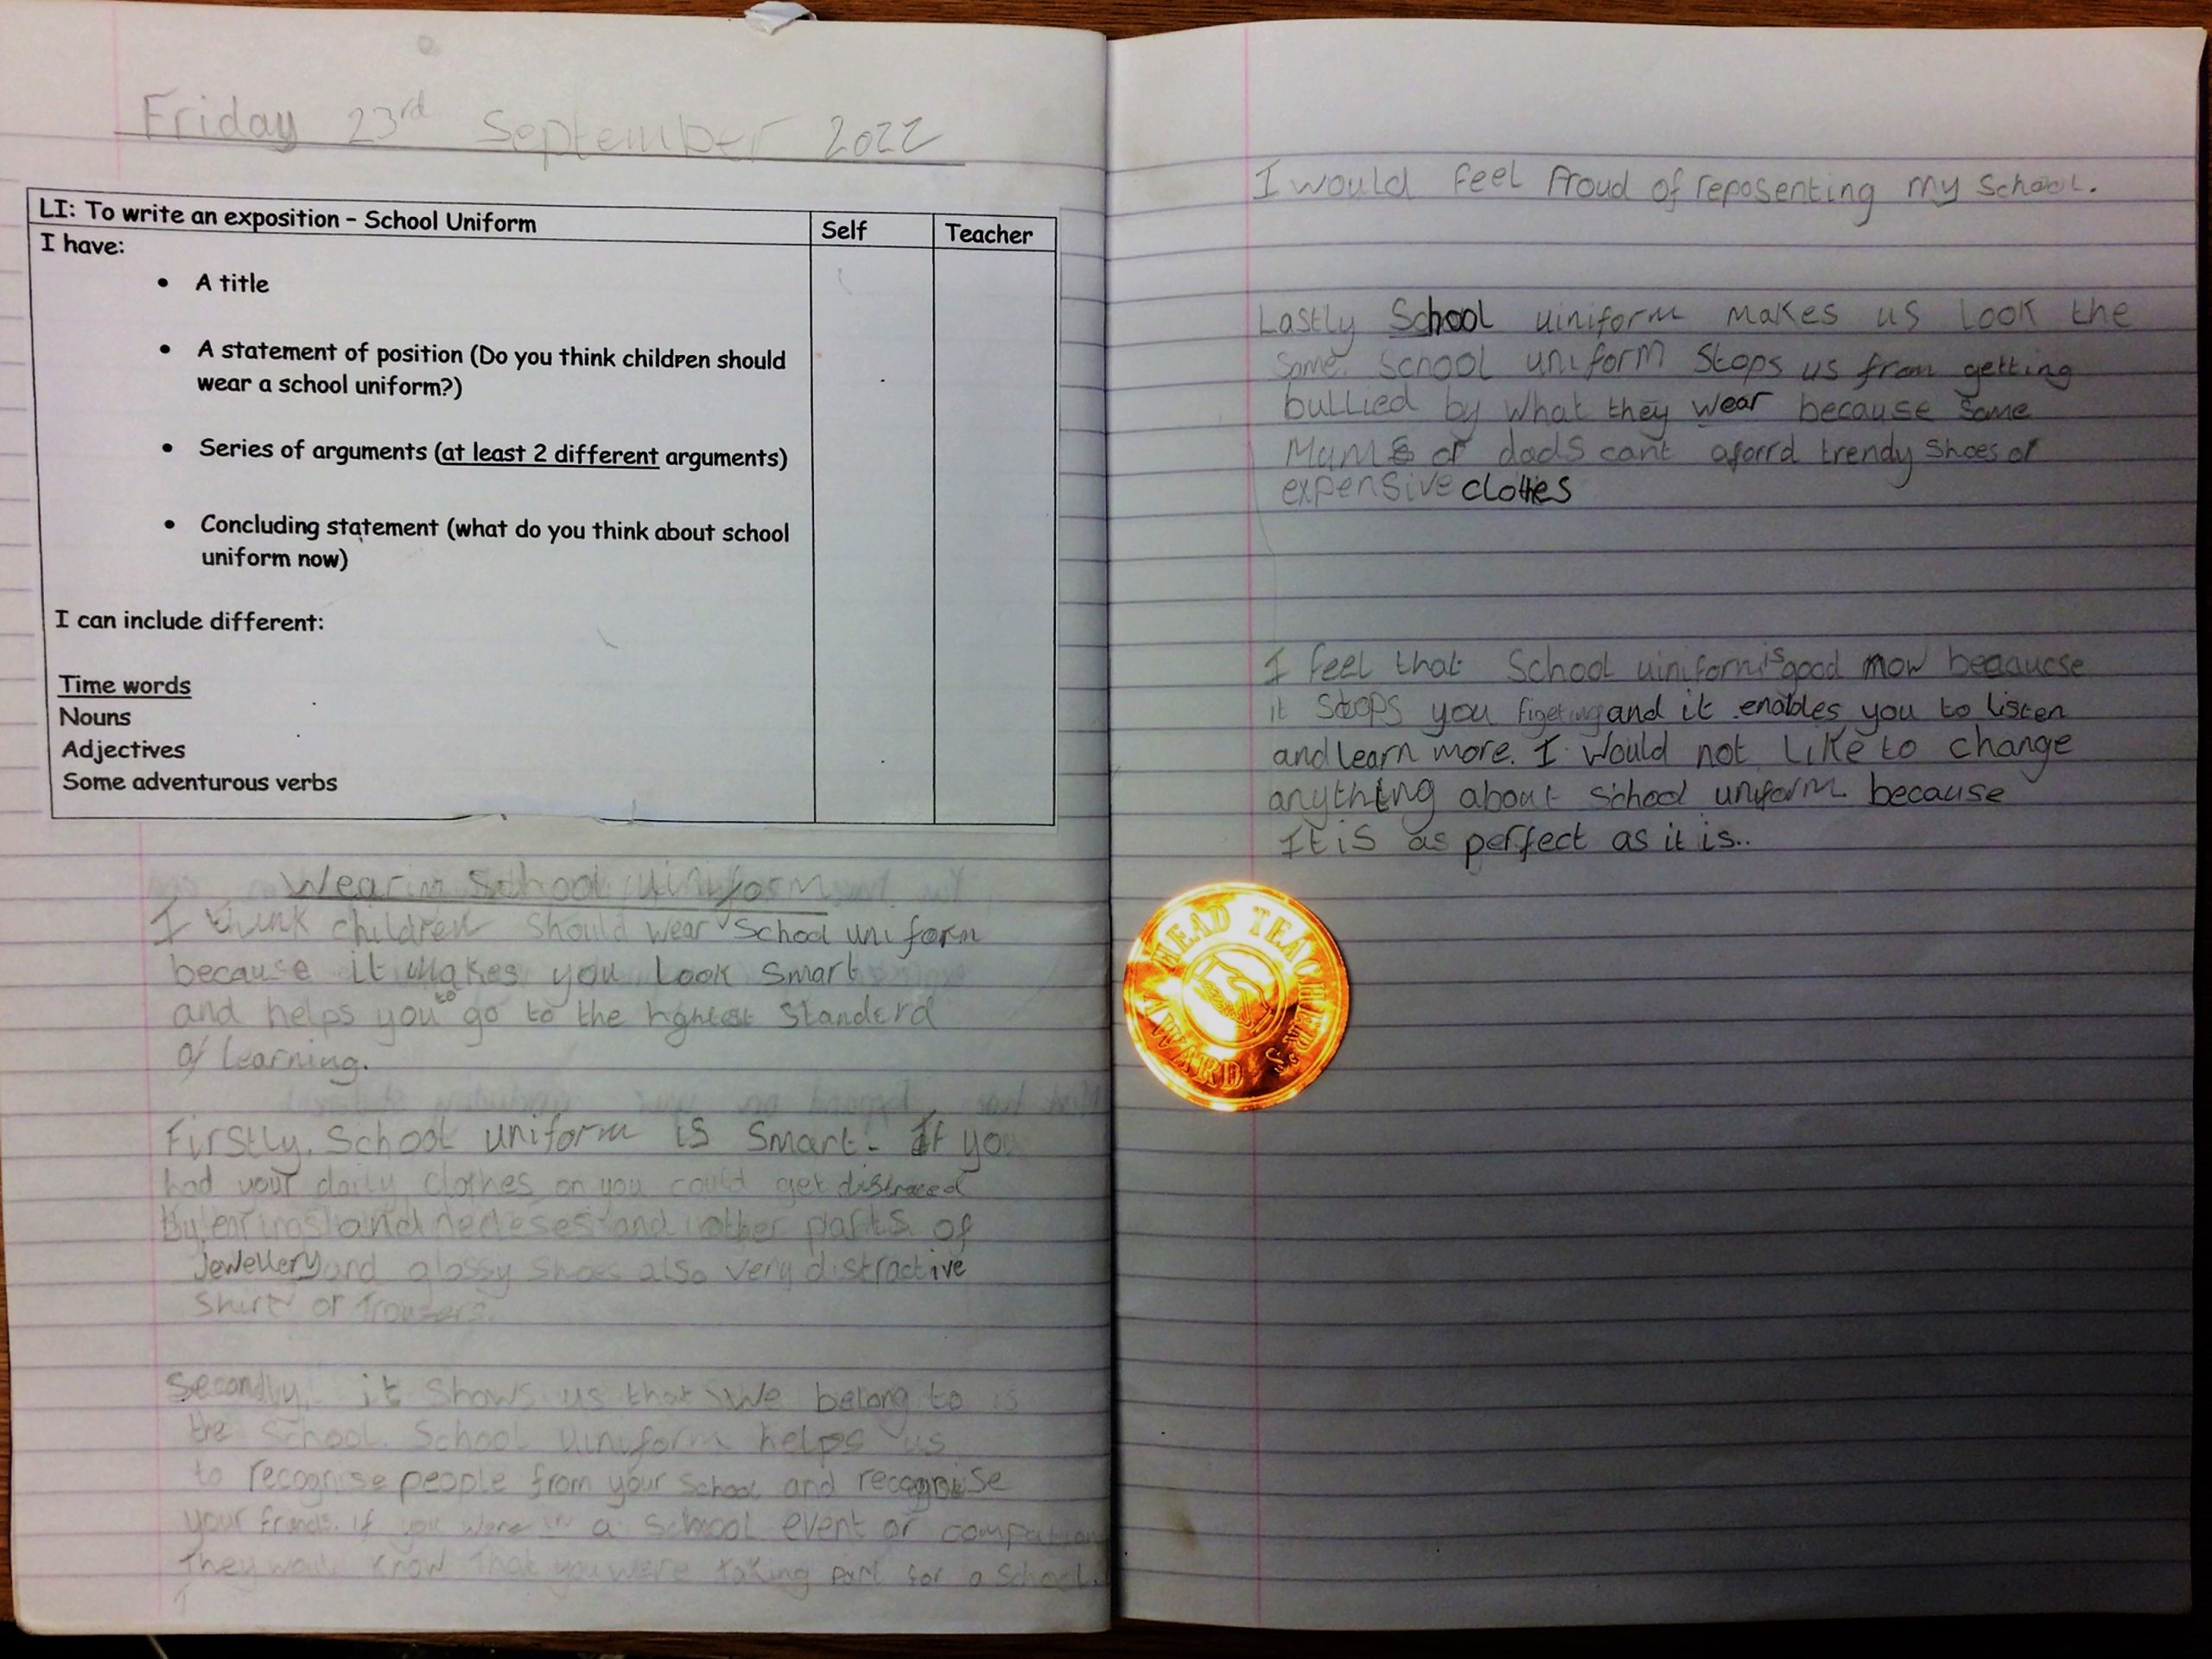 Friday 23rd September 2022
LI: To write an exposition – School Uniform
Self
Teacher
I have:
• A title
• A statement of position (Do you think children should
wear a school uniform?)
• Series of arguments (at least 2 different arguments)
• Concluding statement (what do you think about school
uniform now)
I can include different:
Time words
Nouns
Adjectives
Some adventurous verbs
Wearing School uiniform
I think children should wear School uniform
because it makes you look smart
and helps you to go to the highest standerd
of learning.
Firstly, School uniform is smart. If you
had your daily clothes on you could get distraced
By and and other parts of
Jewellery and glossy shoes also very distractive
shirt or Trousers.
Secondly, it shows us that we belong to
the School. School uiniform helps us
to recognise people from your school and recognise
your if you were in a school event or
They would know that you were taking part for a School.
I
I would feel Proud of reposenting my school.
Lastly School uiniform makes us look the
same. School uniform stops us from getting
bullied by what they wear because some
Mums or dads cant aforrd trendy shoes or
expensive clothes
I feel that School uiniform is good now becaucse
it stops you figeting and it enables you to listen
and learn more. I would not like to change
anything about school uniform because
It is as perfect as it is..
HEAD TEACHER'S AWARD